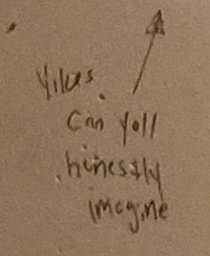 Yikes.
Can yoll
honestly
imagine